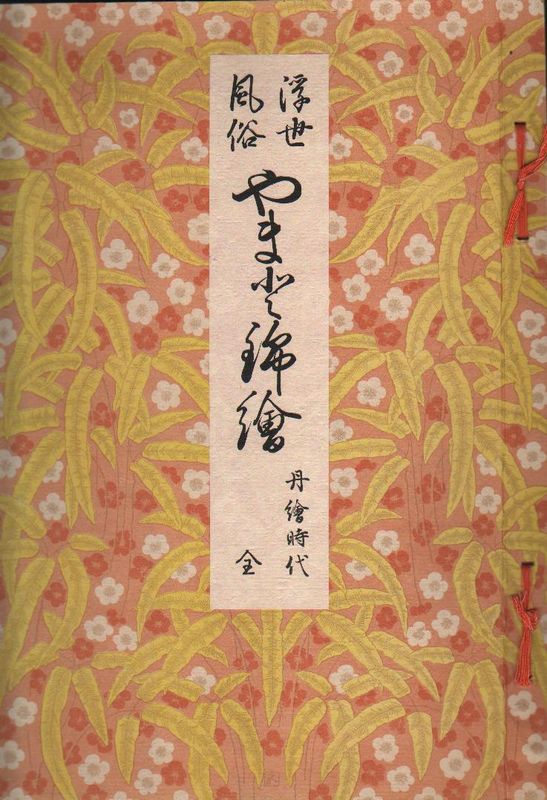 浮世
風俗
やまと錦繪
丹繪時代
全